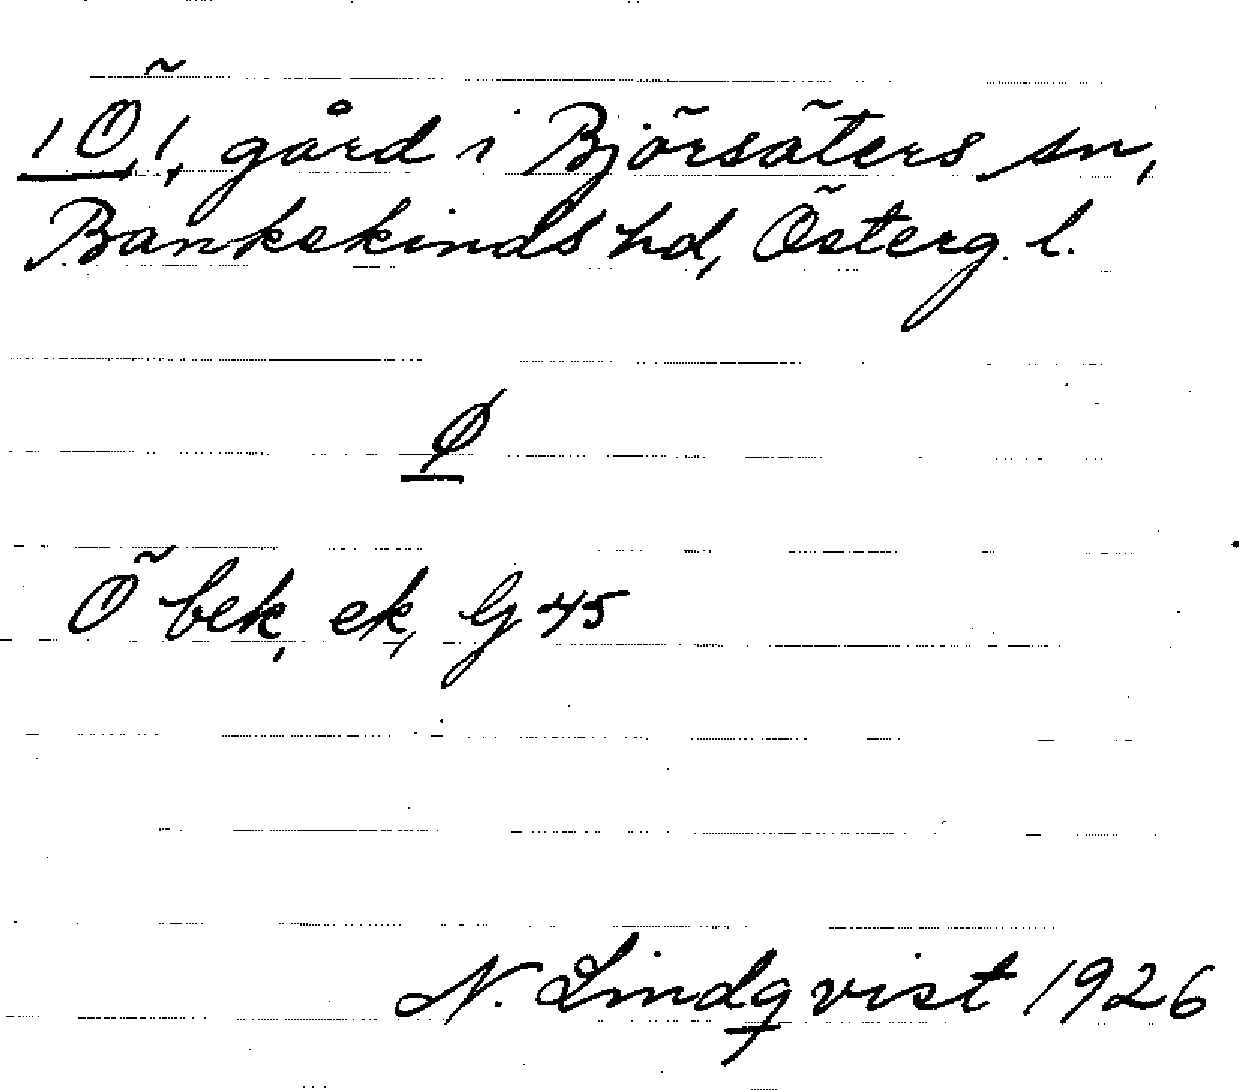 /Ö/, gård i Björsäters sn,
Bankekinds hd, Österg. l.
Ø
Ö bek, ek, G 45
N. Lindqvist 1926